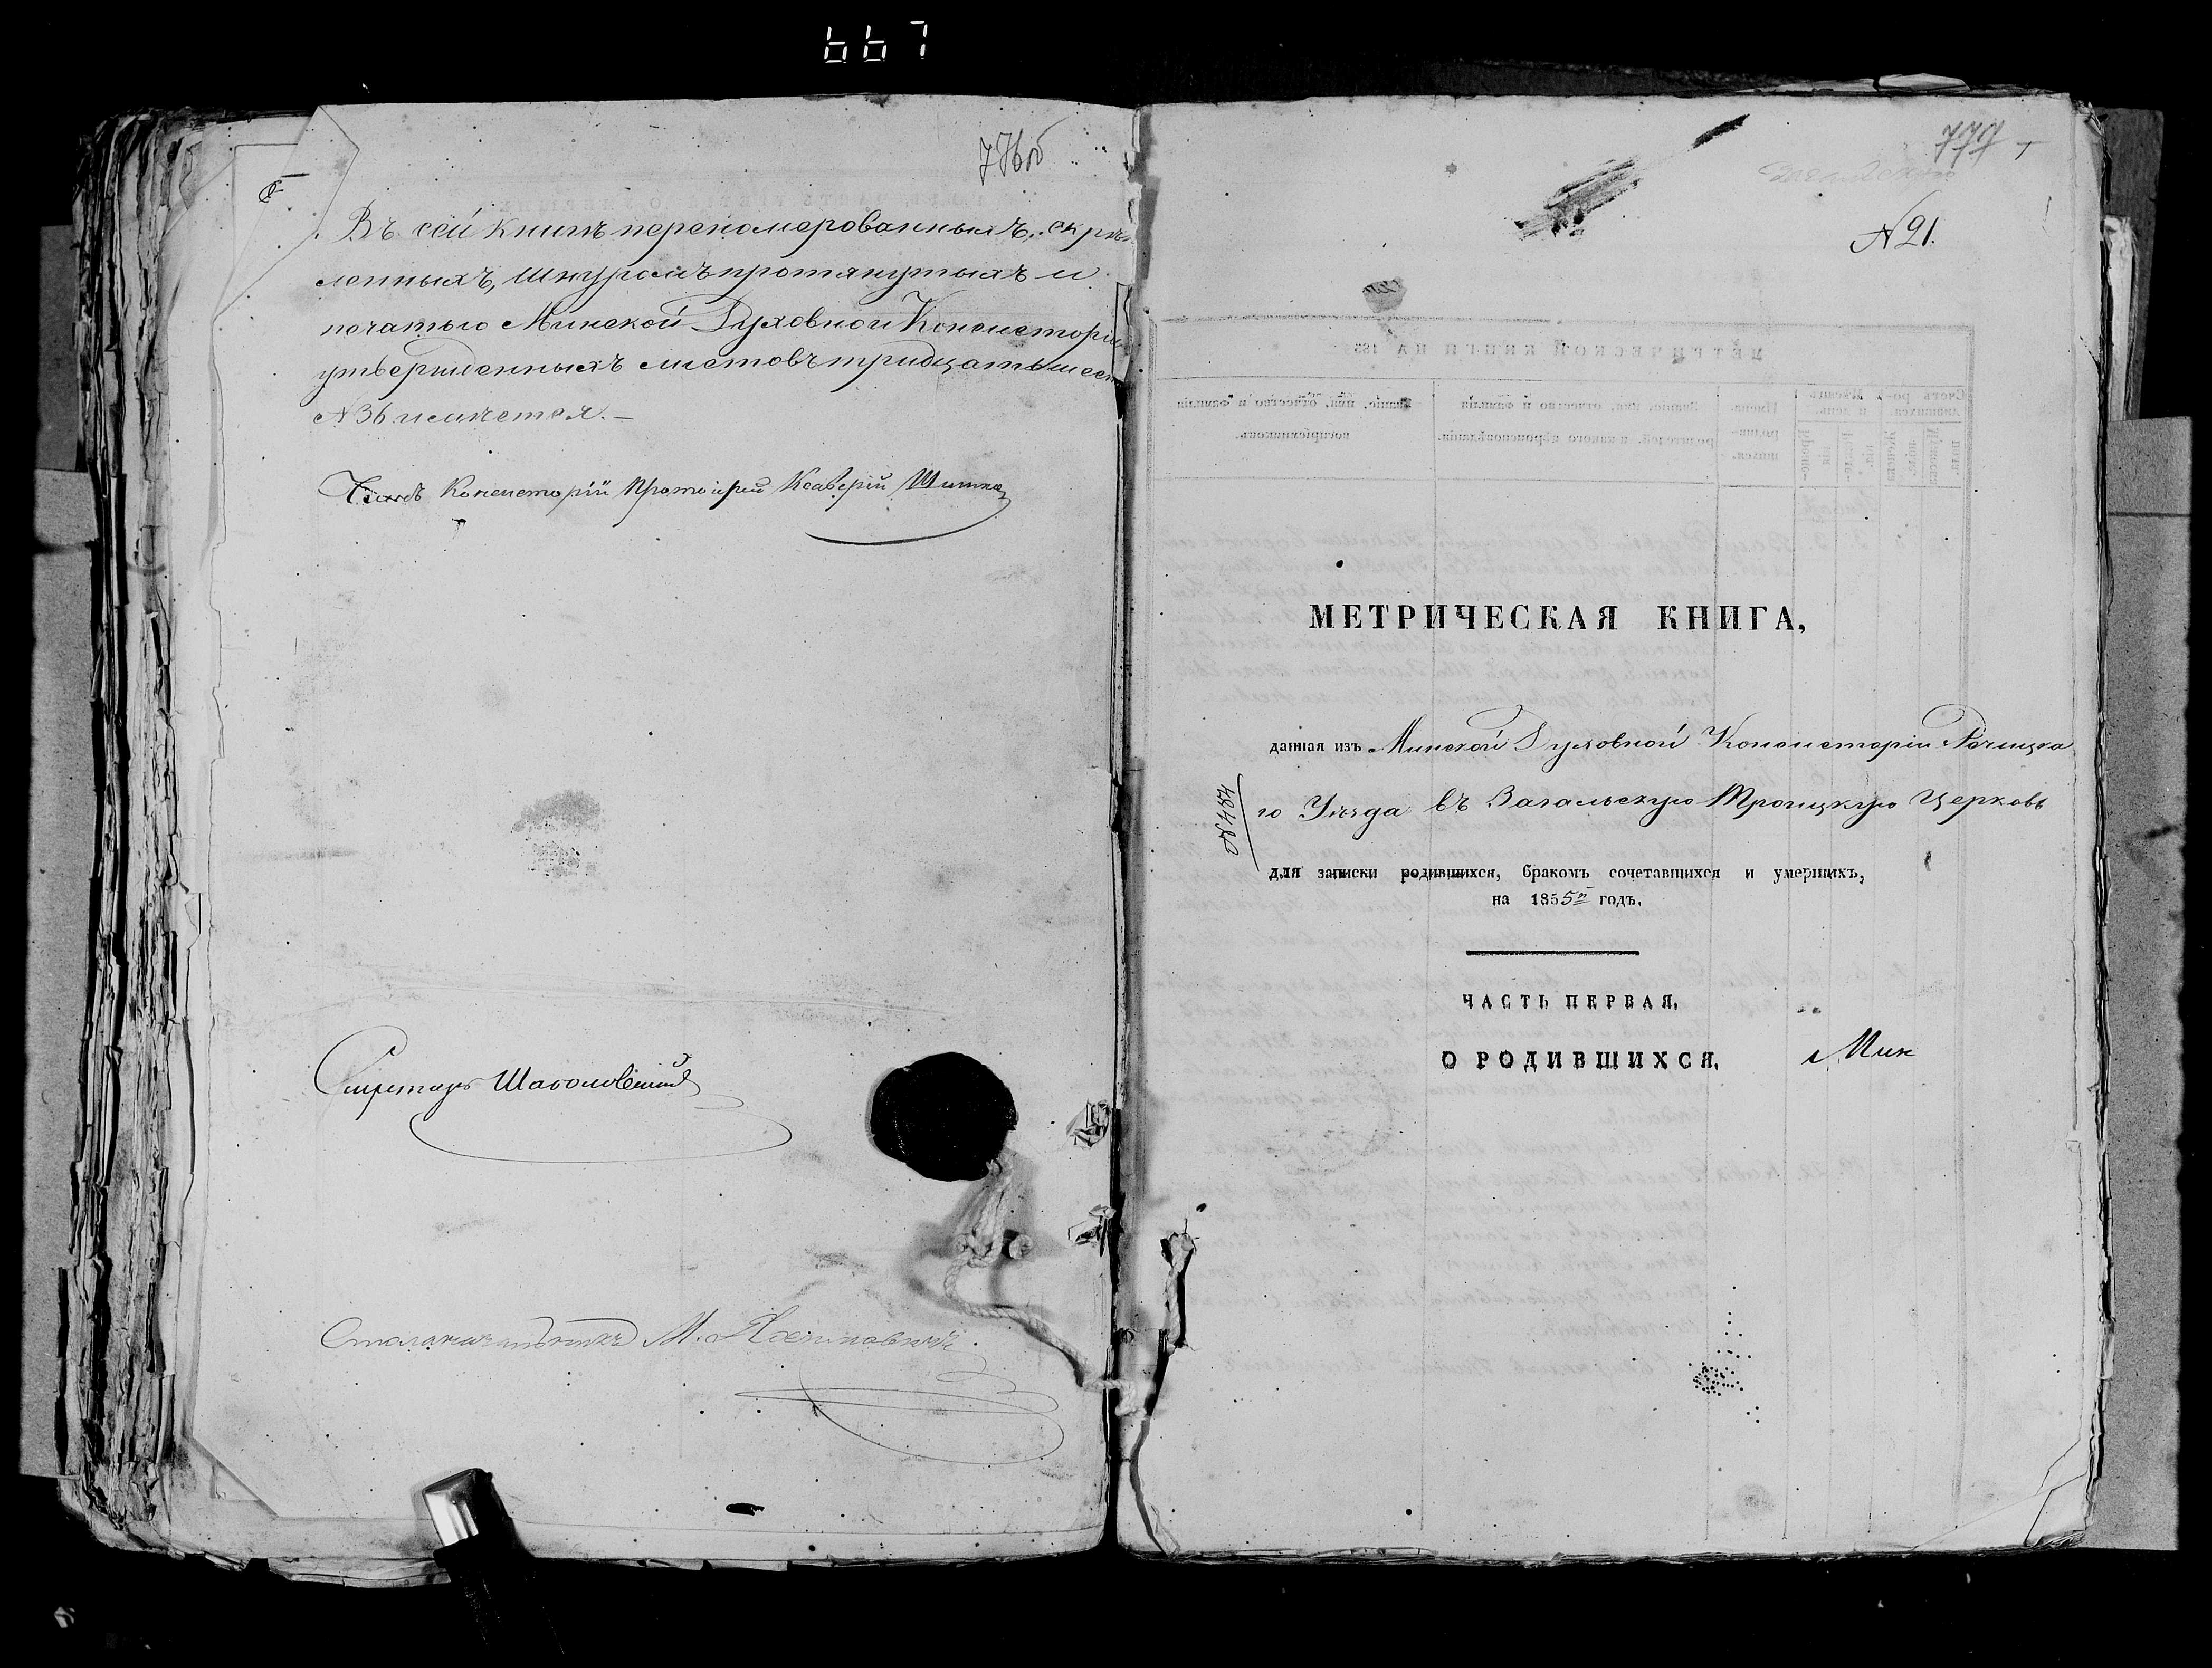 667
776 об
Въ сей книгѣ перепомерованныхъ, скрѣп
ленныхъ, шнуромъ протянутыхъ и
печатью Минской Духовной Консисторіи
утвержденныхъ листовъ тридцать шесть
№ 36 имѣется. —
Членъ Консисторіи Протоіерей Ксаверій
Секретарь
Столоначальникъ М.
777
№ 21.
МЕТРИЧЕСКАЯ КНИГА,
данная изъ Минской Духовной Консисторіи Речицка
го Уѣзда въ Загальскую Троицкую Церковь
№ 484
для записки родившихся, бракомъ сочетавшихся и умершихъ,
на 1855й годъ.
ЧАСТЬ ПЕРВАЯ,
О РОДИВШИХСЯ.
Мин